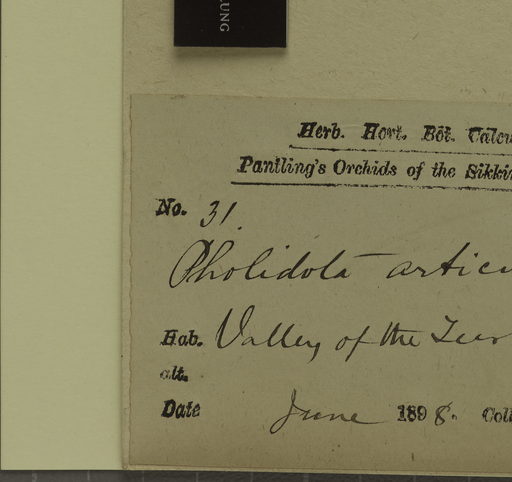 LUNG
Herb. Hort. Bot. Calcu
Pantling's Orchids of the Sikkim
No. 31.
Pholidota articu
Hab. Valley of the
alt.
Date June 1898. Coll